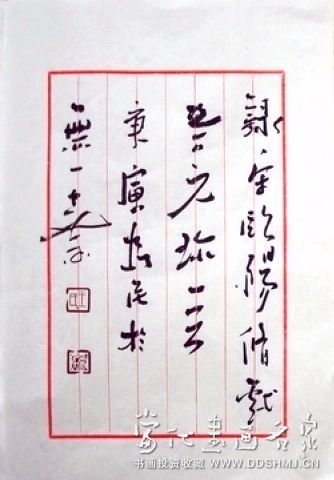 録宋歐陽脩戲
答元珍
庚寅 民於
無一
當代書畫名家
书画投资收藏 WWW.DDSHMJ.CN